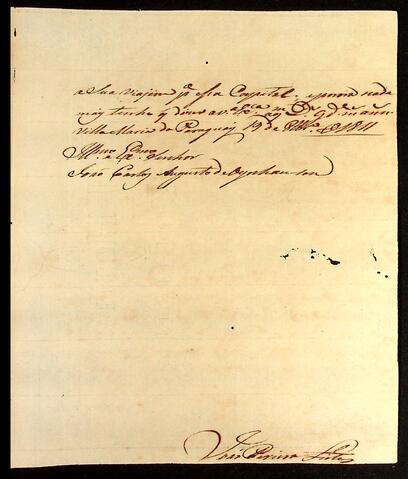 a Sua Viajem pª essa Capital. epor ora nada
mais tenho q̃ dizer a V. Exª q̃ D.s g.de m. ann.
Villa Maria do Paraguay 19 de 8br.o de 1811
Illmo. e Exmo. Senhor
João Carlos Augusto de Oynhausen
João Pereira Leite